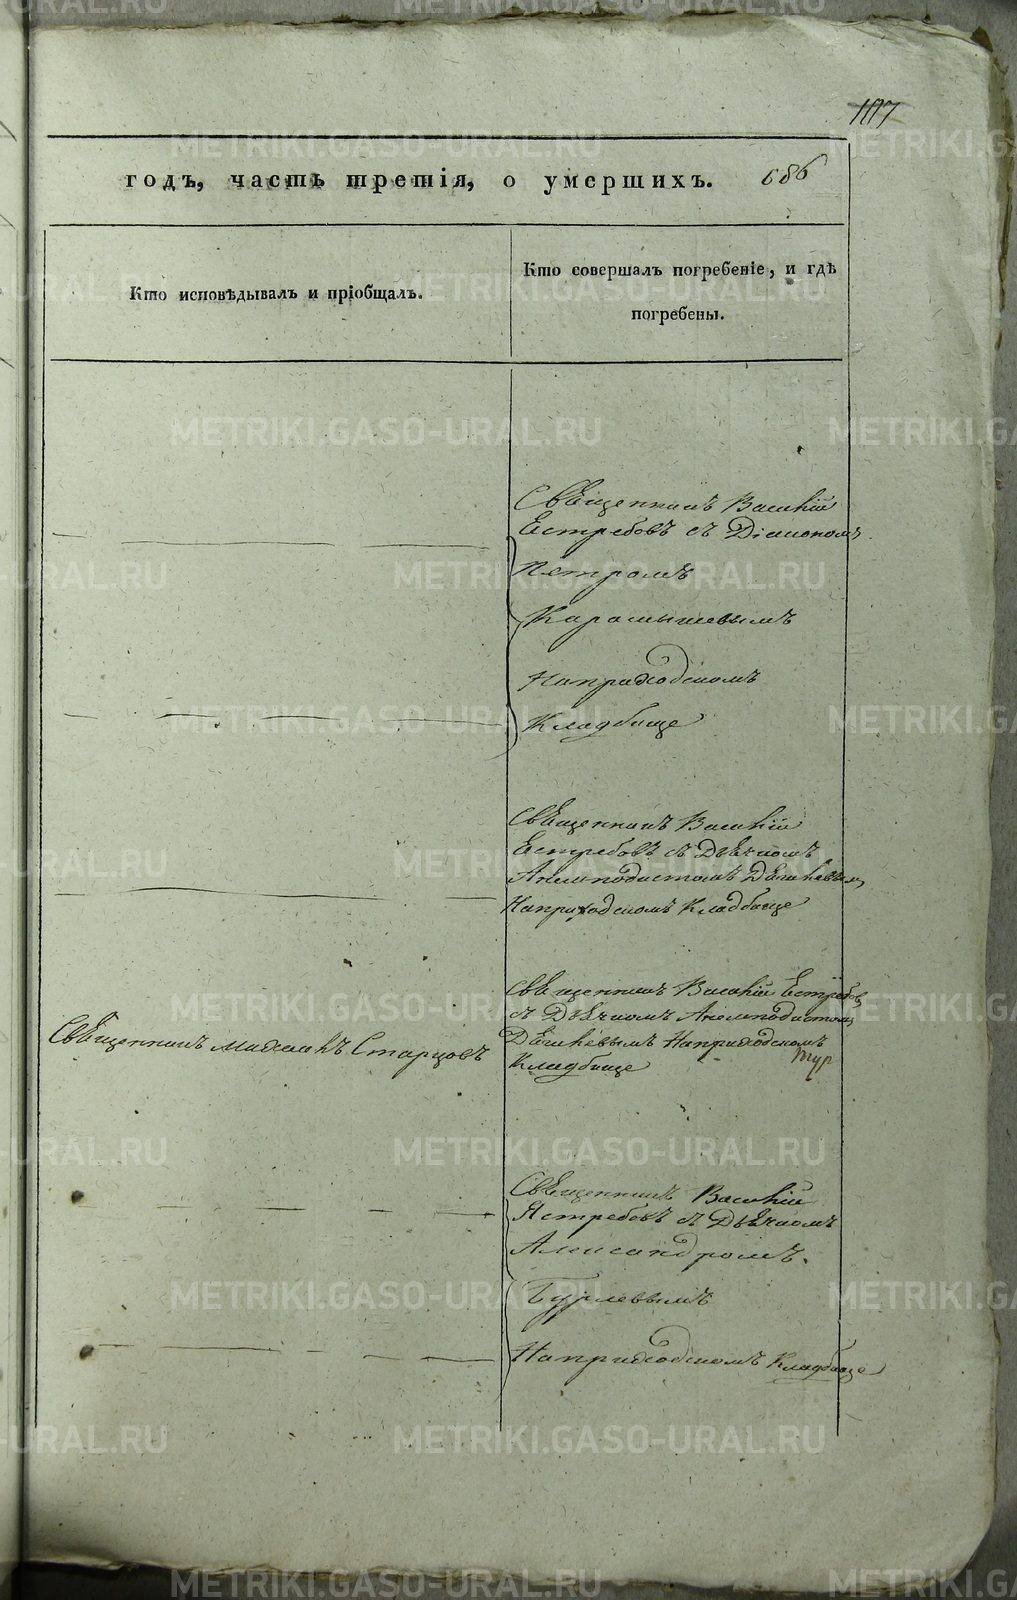 107
годъ, часть третія, о умершихъ. 686
Кто исповѣдывалъ и пріобщалъ.
Кто совершалъ погребеніе, и гдѣ
погребены.
Свѣщенникъ Василій
Естребовъ съ Діакономъ
Петромъ
Карамышевымъ
Наприходскомъ
Кладбище
Свѣщенникъ Василій
Естребовъ съ Дьѣчкомъ
Анемподистомъ
Наприходскомъ Кладбище
Свѣщенникъ Михаилъ Старцовъ
Свѣщенникъ Василій Естребов
съ Дьѣчкомъ Анемподистом
Наприходскомъ
Кладбище
Свѣщенникъ Василій
Ястребовъ съ Дьѣчкомъ
Александромъ.
Бурлевымъ
Наприходскомъ Кладбище
METRIKI.GASO-URAL.RU